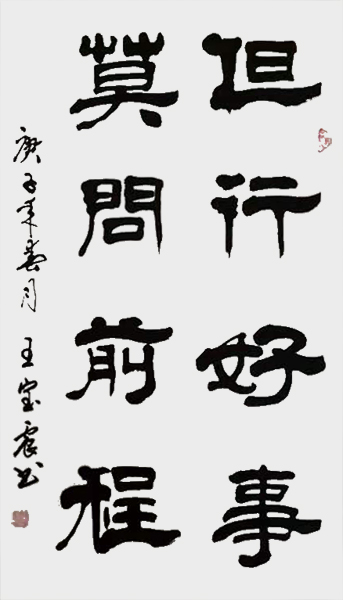 但行好事
莫問前程
庚子年春月 王宝震书